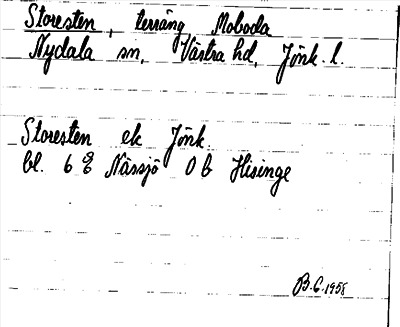 Storesten, terräng Moboda
Nydala sn, Västra hd, Jönk. l.
Storesten ek Jönk.
bl. 6 E Nässjö 0 b Hisinge
B.G. 1958